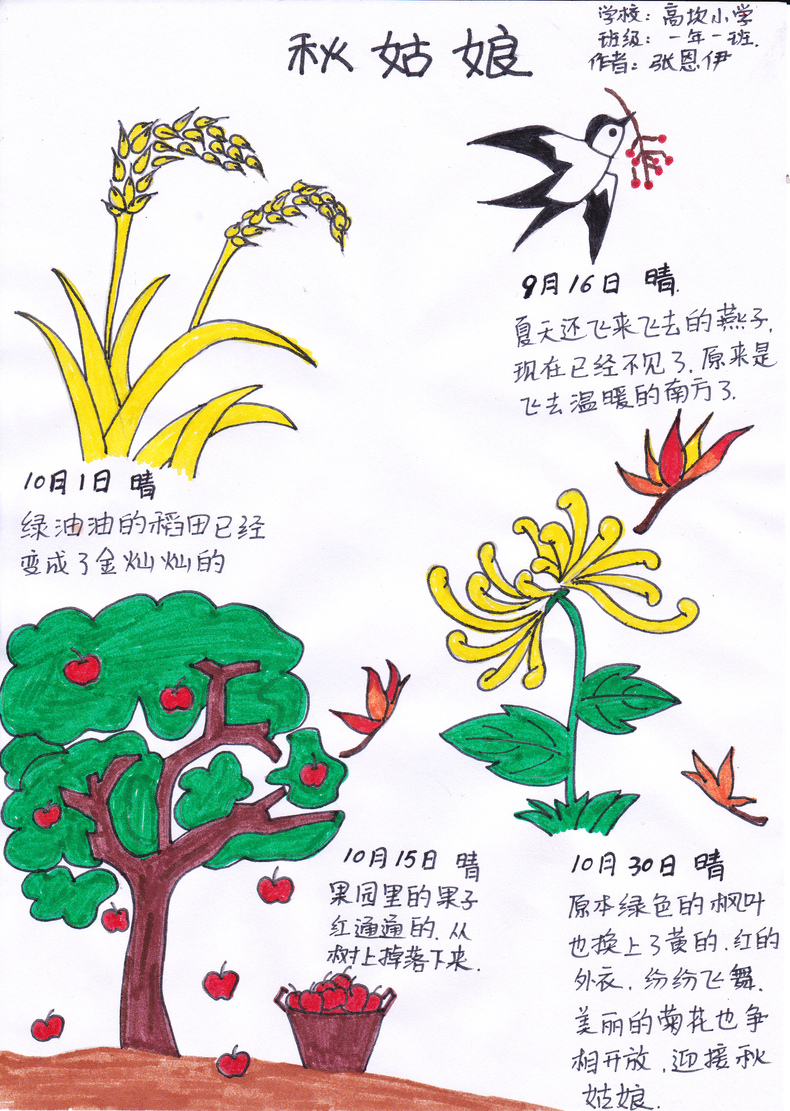 秋姑娘
学校：高坎小学
班级：一年一班.
作者：张恩伊
9月16日 晴.
夏天还飞来飞去的燕子,
现在已经不见了.原来是
飞去温暖的南方了.
10月1日 晴
绿油油的稻田已经
变成了金灿灿的
10月15日 晴
果园里的果子
红通通的.从
树上掉落下来.
10月30日 晴
原本绿色的枫叶
也换上了黄的.红的
外衣.纷纷飞舞.
美丽的菊花也争
相开放,迎接秋
姑娘.